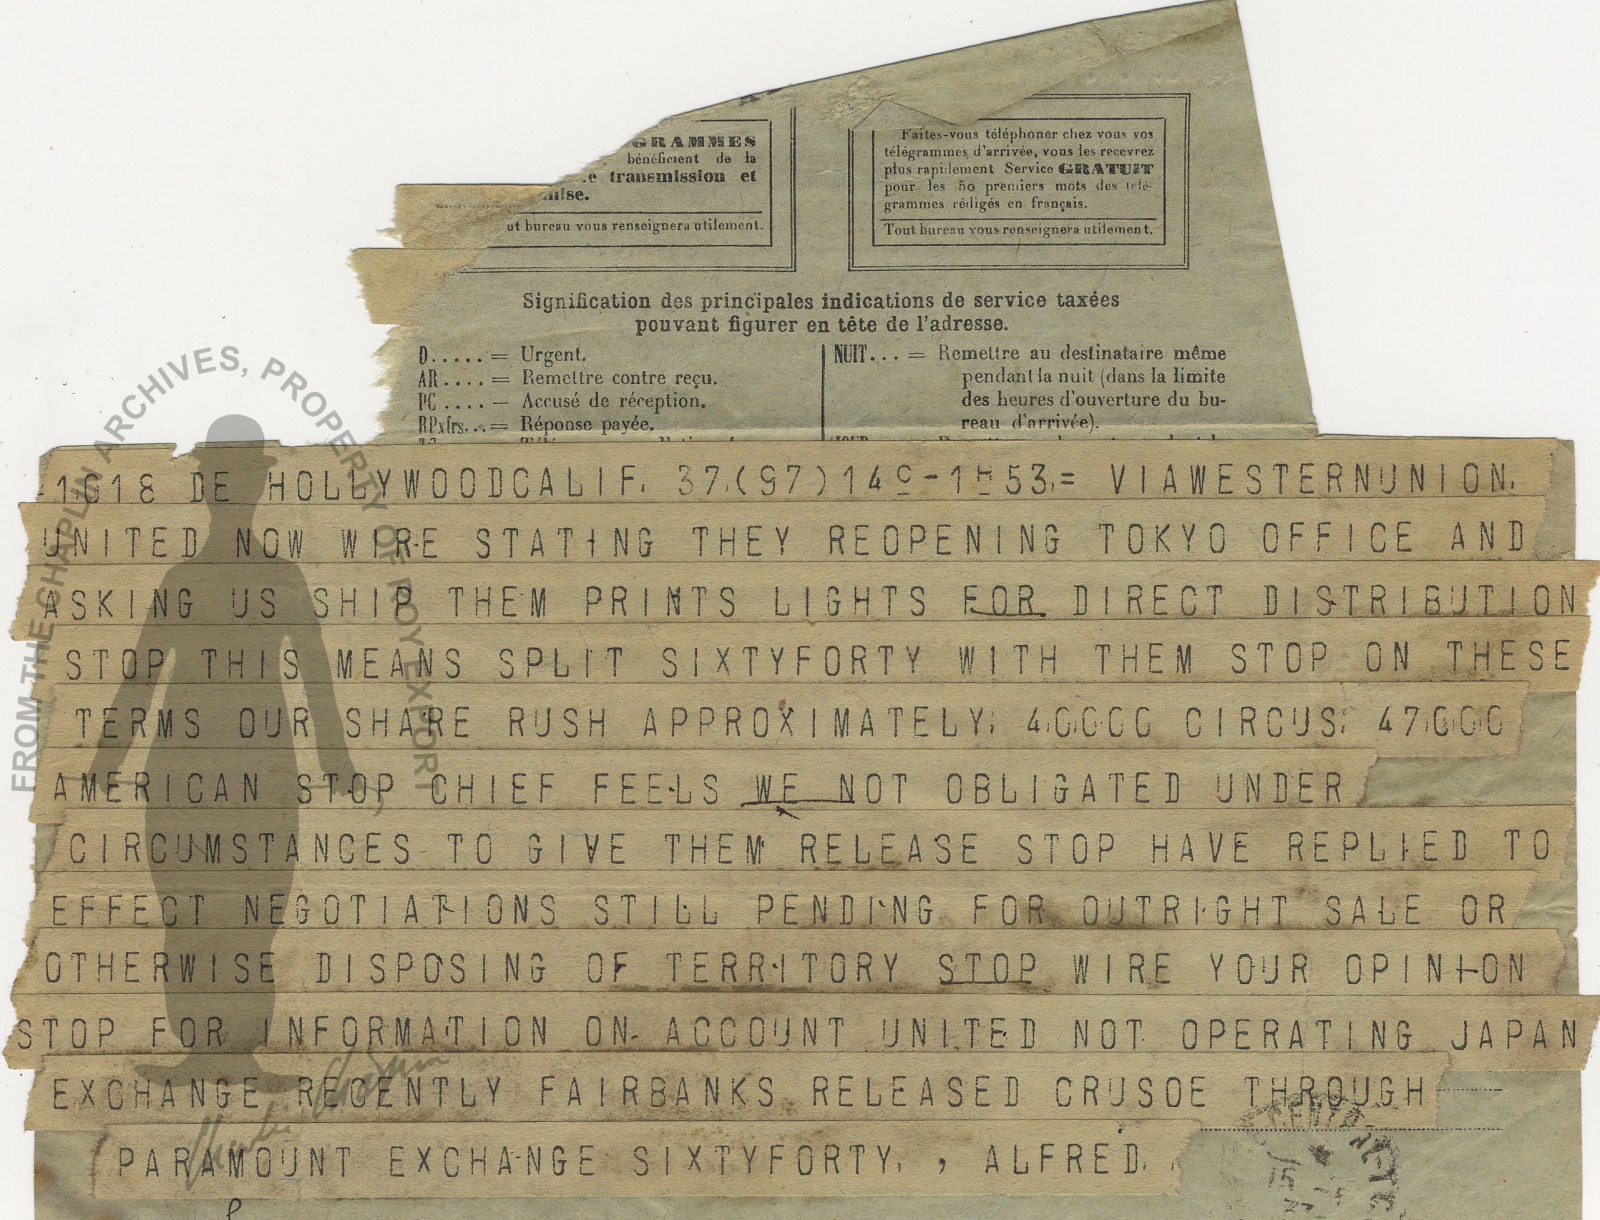 GRAMMES
bénéficient de la
transmission et
mise.
ut bureau vous renseignera utilement.
Faites-vous téléphoner chez vous vos
télégrammes d'arrivée, vous les recevrez
plus rapidement Service GRATUIT
pour les 50 premiers mots des télé-
grammes rédigés en français.
Tout bureau vous renseignera utilement.
Signification des principales indications de service taxées
pouvant figurer en tête de l'adresse.
D..... = Urgent.
AR.... = Remettre contre reçu.
PC.... = Accusé de réception.
RPxfrs... = Réponse payée.
NUIT... = Remettre au destinataire même
pendant la nuit (dans la limite
des heures d'ouverture du bu-
reau d'arrivée).
DE HOLLYWOODCALIF. 37.(97) VIAWESTERNUNION.
UNITED NOW WIRE STATING THEY REOPENING TOKYO OFFICE AND
ASKING US SHIP THEM PRINTS LIGHTS FOR DIRECT DISTRIBUTION
STOP THIS MEANS SPLIT SIXTYFORTY WITH THEM STOP ON THESE
TERMS OUR SHARE RUSH APPROXIMATELY. 40000 CIRCUS. 47000
AMERICAN STOP CHIEF FEELS WE NOT OBLIGATED UNDER
CIRCUMSTANCES TO GIVE THEM RELEASE STOP HAVE REPLIED TO
EFFECT NEGOTIATIONS STILL PENDING FOR OUTRIGHT SALE OR
OTHERWISE DISPOSING OF TERRITORY STOP WIRE YOUR OPINION
STOP FOR INFORMATION ON ACCOUNT UNITED NOT OPERATING JAPAN
EXCHANGE RECENTLY FAIRBANKS RELEASED CRUSOE THROUGH
PARAMOUNT EXCHANGE SIXTYFORTY. , ALFRED.
FROM THE CHAPLIN ARCHIVES, PROPERTY OF ROY EXPORT
Charlie Chaplin